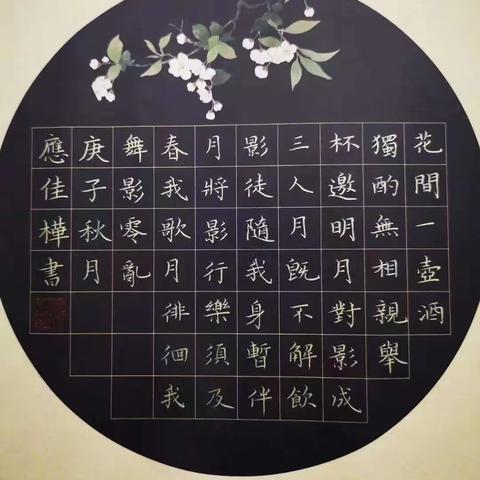 花間一壺酒
獨酌無相親舉
杯邀明月對影成
三人月既不解飲
影徒隨我身暫伴
月將影行樂須及
春我歌月徘徊我
舞影零亂
庚子秋月
應佳樺書